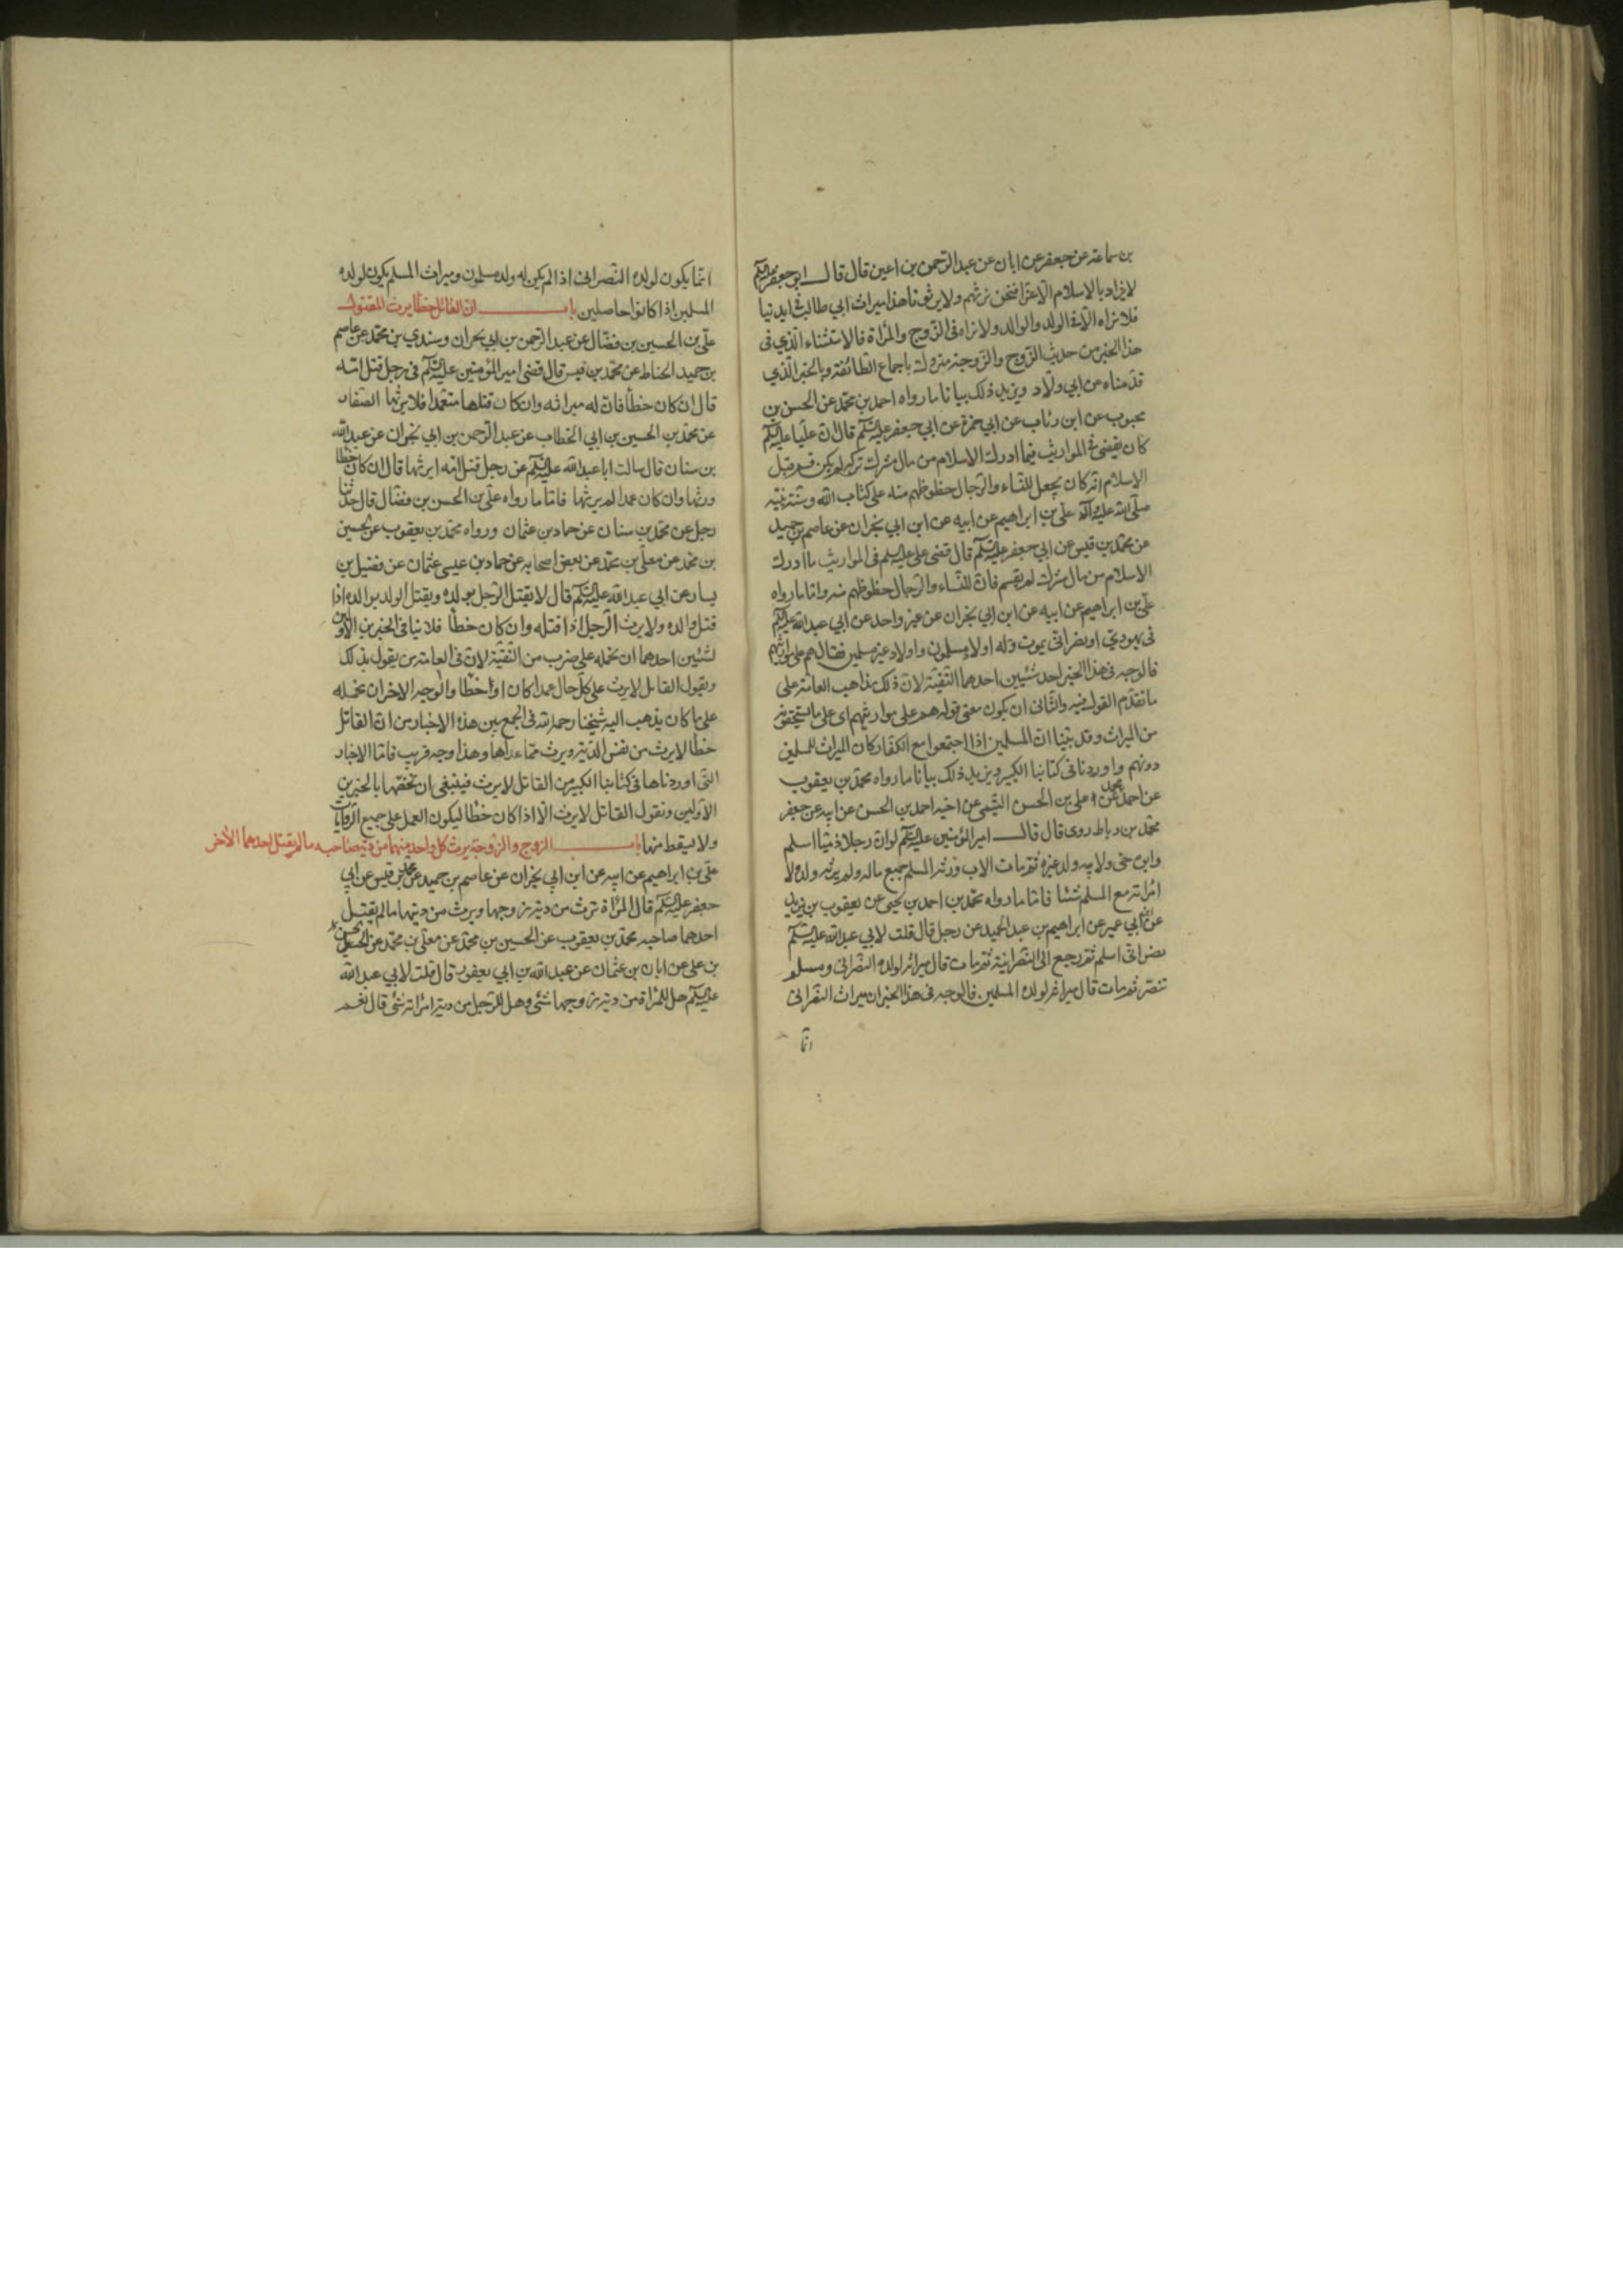 بن سماعة عن جعفر عن ابان عن عبد الرحمن بن اعين قال قال ابو جعفر عليه السلم
لا يزداد بالاسلام الا عزا فنحن نرثهم ولا يرثونا هذا ميراث ابي طالب في ايدينا
فلا نراه الا في الولد والوالد ولا نراه في الزوج والمراة فالاستثناء الذي في
هذا الخبر من حديث الزوج والزوجة متروك باجماع الطائفة وبالخبر الذي
قدمناه عن ابي ولاد ويزيد ذلك بيانا ما رواه احمد بن محمد عن الحسن بن
محبوب عن ابن رئاب عن ابي حمزة عن ابي جعفر عليه السلم قال ان عليا عليه السلم
كان يقضي في المواريث فيما ادرك الاسلام من مال مشرك تركه لم يكن قسم قبل
الاسلام انه كان يجعل للنساء والرجال حظوظهم منه على كتاب الله وسنة نبيه
صلى الله عليه واله علي بن ابراهيم عن ابيه عن ابن ابي نجران عن عاصم بن حميد
عن محمد بن قيس عن ابي جعفر عليه السلم قال قضى علي عليه السلم في المواريث ما ادرك
الاسلام من مال مشرك لم يقسم فان للنساء والرجال حظوظهم منه واما ما رواه
علي بن ابراهيم عن ابيه عن ابن ابي نجران عن غير واحد عن ابي عبد الله عليه السلم
في يهودي او نصراني يموت وله اولاد مسلمون واولاد غير مسلمين فقال هم على مواريثهم
فالوجه في هذا الخبر احد شيئين احدهما التقية لان ذلك مذاهب العامة على
ما تقدم القول فيه والثاني ان يكون معنى قوله هم على مواريثهم اي على ما يستحقونه
من الميراث وقد بينا ان المسلمين اذا اجتمعوا مع الكفار كان الميراث للمسلمين
دونهم واوردنا في كتابنا الكبير ويزيد ذلك بيانا ما رواه محمد بن يعقوب
عن احمد بن محمد عن علي بن الحسن التيمي عن اخيه احمد بن الحسن عن ابيه عن جعفر
محمد بن رباط روى قال قال امير المؤمنين عليه السلم لو ان رجلا ذميا اسلم
وابوه حي ولابيه ولد غيره ثم مات الاب ورثه المسلم جميع ماله ولم يرثه ولده ولا
امراته مع المسلم شيئا فاما ما رواه محمد بن احمد بن يحيى عن يعقوب بن يزيد
عن ابن ابي عمير عن ابراهيم بن عبد الحميد عن رجل قال قلت لابي عبد الله عليه السلم
نصراني اسلم ثم رجع الى النصرانية ثم مات قال ميراثه لولده النصراني ومسلم
تنصر ثم مات قال ميراثه لولده المسلمين فالوجه في هذا الخبر ان ميراث النصراني
انما
انما يكون لولده النصراني اذا لم يكن له ولد مسلمون وميراث المسلم يكون لولده
المسلمين اذا كانوا حاصلين باب ان القاتل خطأ يرث المقتول
علي بن الحسين بن فضال عن عبد الرحمن بن ابي نجران وسندي بن محمد عن عاصم
بن حميد الحناط عن محمد بن قيس قال قضى امير المؤمنين عليه السلم في رجل قتل امه
قال ان كان خطأ فان له ميراثه وان كان قتلها متعمدا فلا يرثها الصفار
عن محمد بن الحسين بن ابي الخطاب عن عبد الرحمن بن ابي نجران عن عبد الله
بن سنان قال سالت ابا عبد الله عليه السلم عن رجل قتل امه ايرثها قال ان كان خطأ
ورثها وان كان عمدا لم يرثها فاما ما رواه علي بن الحسن بن فضال قال حدثنا
رجل عن محمد بن سنان عن حماد بن عثمان ورواه محمد بن يعقوب عن الحسين
بن محمد عن معلى بن محمد عن بعض اصحابه عن حماد بن عيسى عثمان عن فضيل بن
يسار عن ابي عبد الله عليه السلم قال لا يقتل الرجل بولده ويقتل الولد بوالده اذا
قتل والده ولا يرث الرجل اذا قتله وان كان خطأ فلا ينافي الخبرين الاولين
لشيئين احدهما ان نحمله على ضرب من التقية لان في العامة من يقول بذلك
ويقول القاتل لا يرث على كل حال عمدا كان او خطأ والوجه الاخر ان نحمله
على ما كان يذهب اليه شيخنا رحمه الله في الجمع بين هذه الاخبار من ان القاتل
خطأ لا يرث من نفس الدية ويرث مما عداها وهذا وجه قريب فاما الاخبار
التي اوردناها في كتابنا الكبير من القاتل لا يرث فينبغي ان نخصها بالخبرين
الاولين ونقول القاتل لا يرث الا اذا كان خطأ ليكون العمل على جميع الروايات
ولا يسقط منها باب الزوج والزوجة يرث كل واحد منهما من دية صاحبه ما لم يقتل احدهما الاخر
علي بن ابراهيم عن ابيه عن ابن ابي نجران عن عاصم بن حميد عن محمد بن قيس عن ابي
جعفر عليه السلم قال المراة ترث من دية زوجها ويرث من ديتها ما لم يقتل
احدهما صاحبه محمد بن يعقوب عن الحسين بن محمد عن معلى بن محمد عن الحسن
بن علي عن ابان بن عثمان عن عبد الله بن ابي يعفور قال قلت لابي عبد الله
عليه السلم هل للمراة من دية زوجها شئ وهل للرجل من دية امراته شئ قال نعم